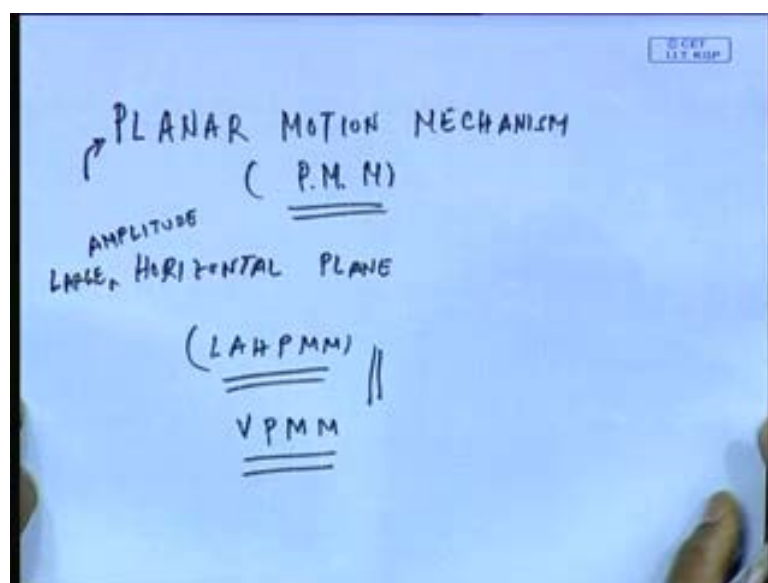 © CET
I.I.T. KGP
PLANAR MOTION MECHANISM
( P.M.M)
AMPLITUDE
LARGE, HORIZONTAL PLANE
(LAHPMM)
VPMM